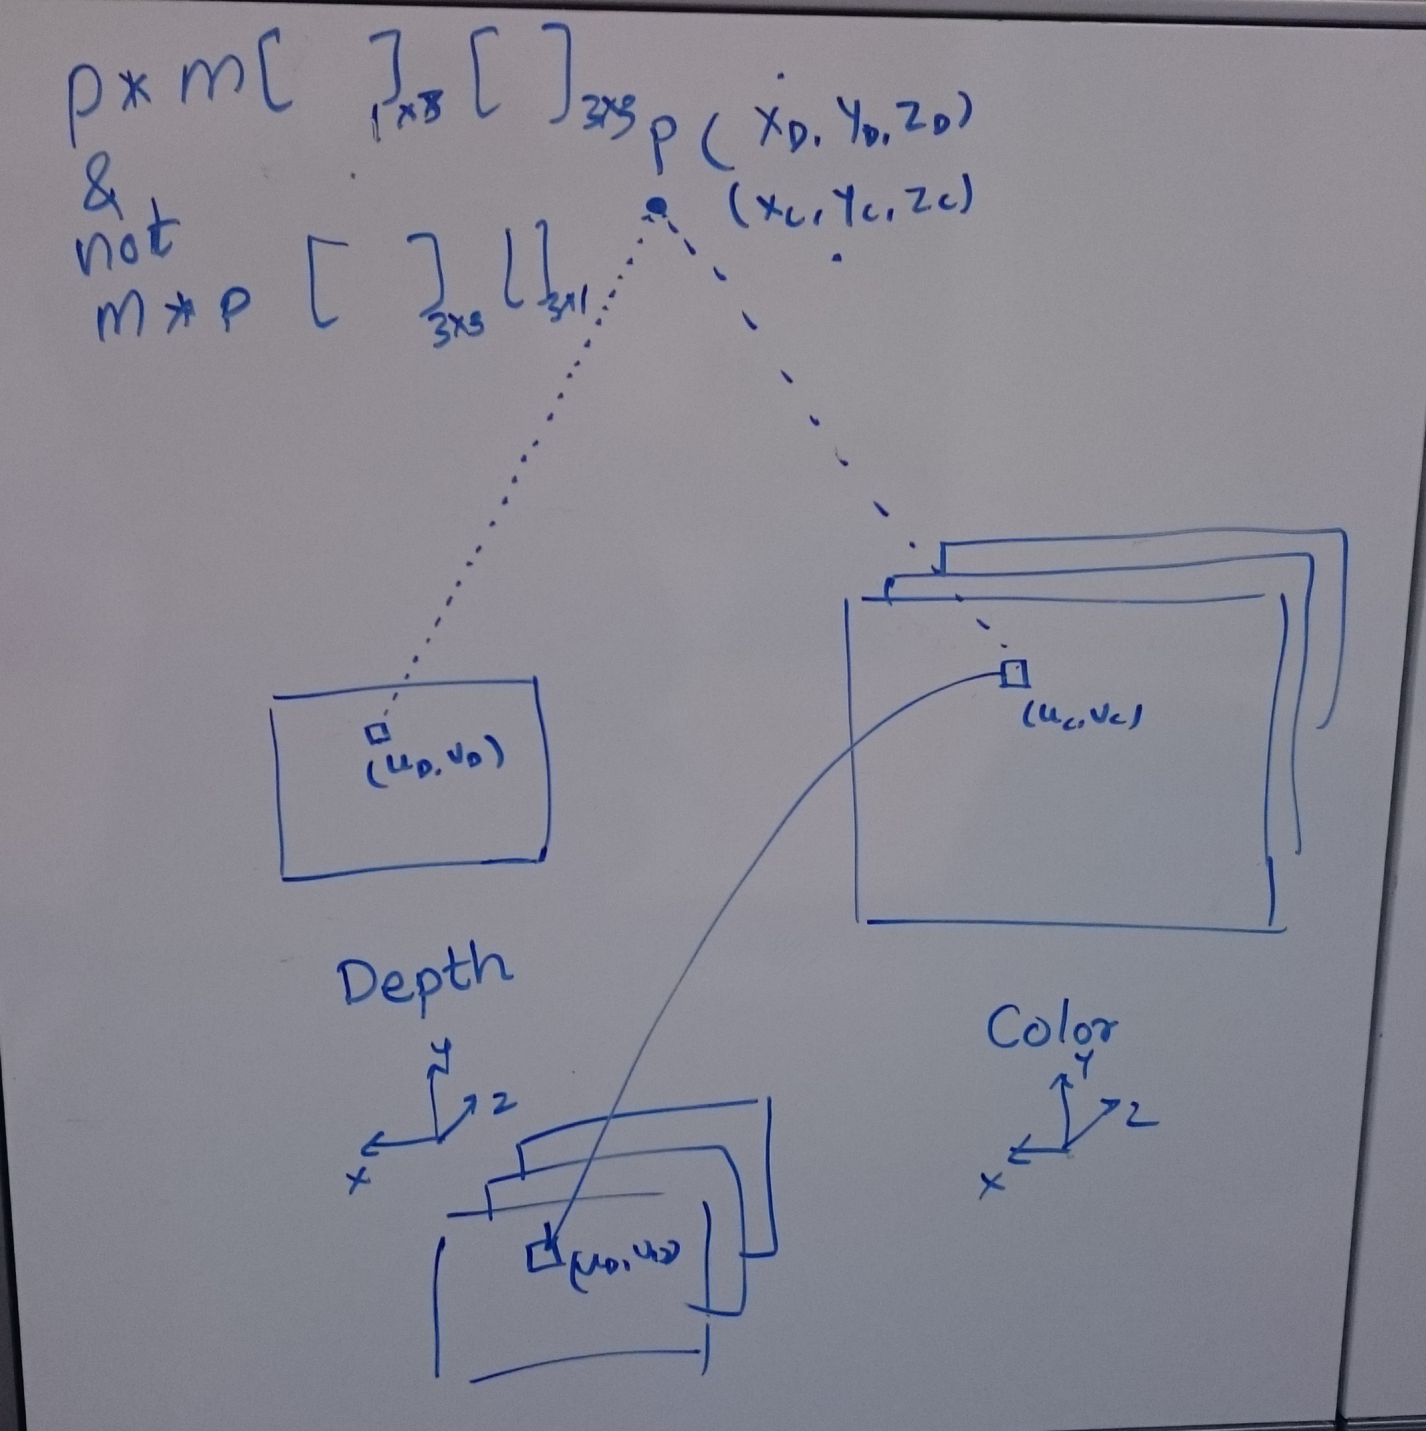 p * m [ ]1x3 [ ]3x3
&
not
m * p [ ]3x3 [ ]3x1
P ( XD, YD, ZD)
(XC, YC, ZC)
(uD, vD)
(uC, vC)
Depth
Y
Z
X
Color
Y
Z
X
(uD, vD)